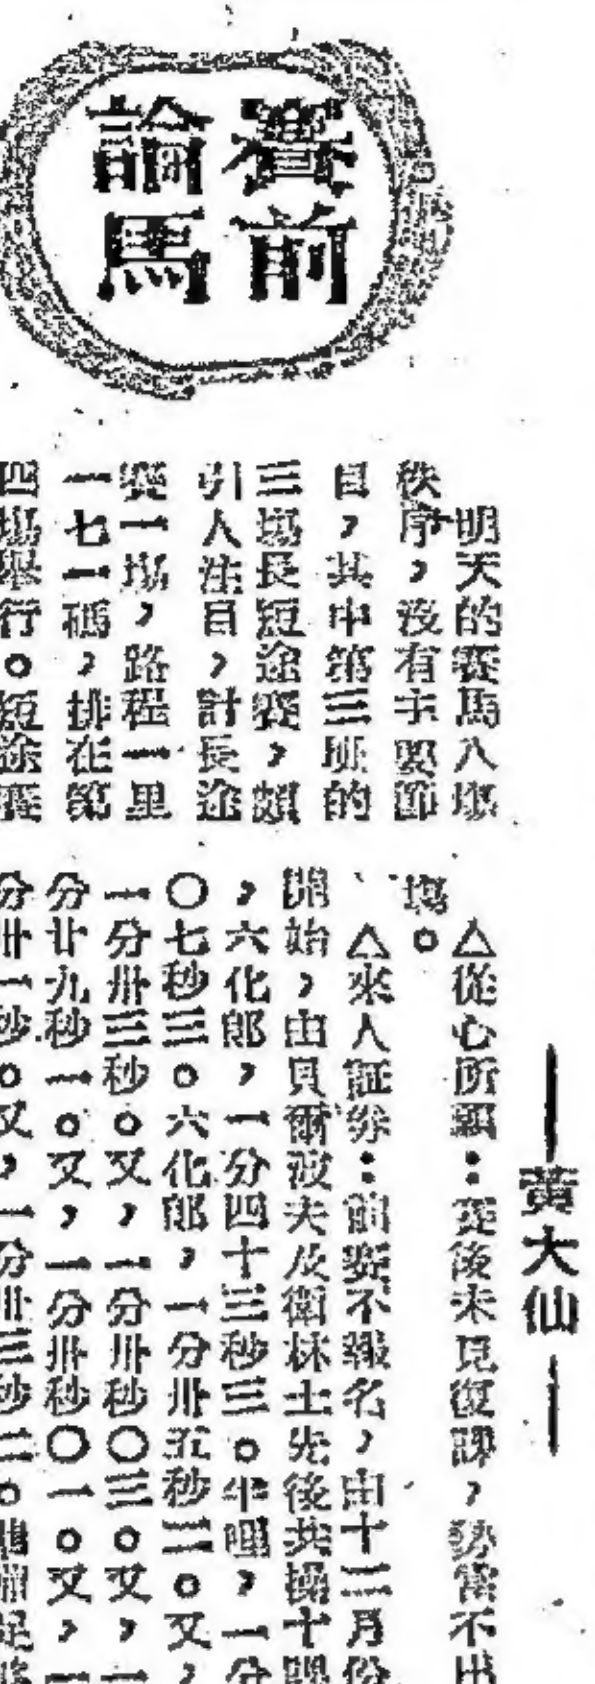 賽前
論馬
明天的賽馬八塲
秩序，沒有主要節
目，其中第三班的
三塲長短途賽，頗
引人注目，計長途
賽一塲，路程一里
一七一碼，排在第
四塲舉行。短途賽
——黃大仙——
△從心所願：賽後未見復課，勢當不出
塲。
△來人証券：前賽不報名，由十二月份
開始，由貝爾波夫及衛林士先後共操十課
，六化郎，一分四十三秒三。半哩，一分
〇七秒三。六化郎，一分卅五秒三。又，
一分卅三秒。又，一分卅秒〇三。又，一
分廿九秒一。又，一分卅秒〇一。又，一
分卅一秒。又，一分卅三秒二。